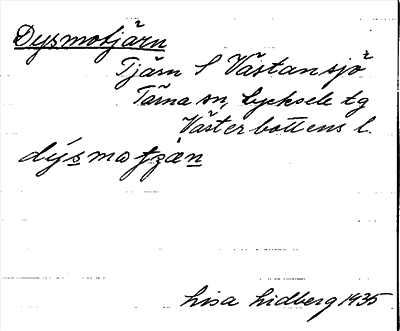 Dysmotjärn
Tjärn S Västansjö
Tärna sn, Lycksele tg
Västerbottens l.
dýsmatʒæ̀n
Lisa Lidberg 1935